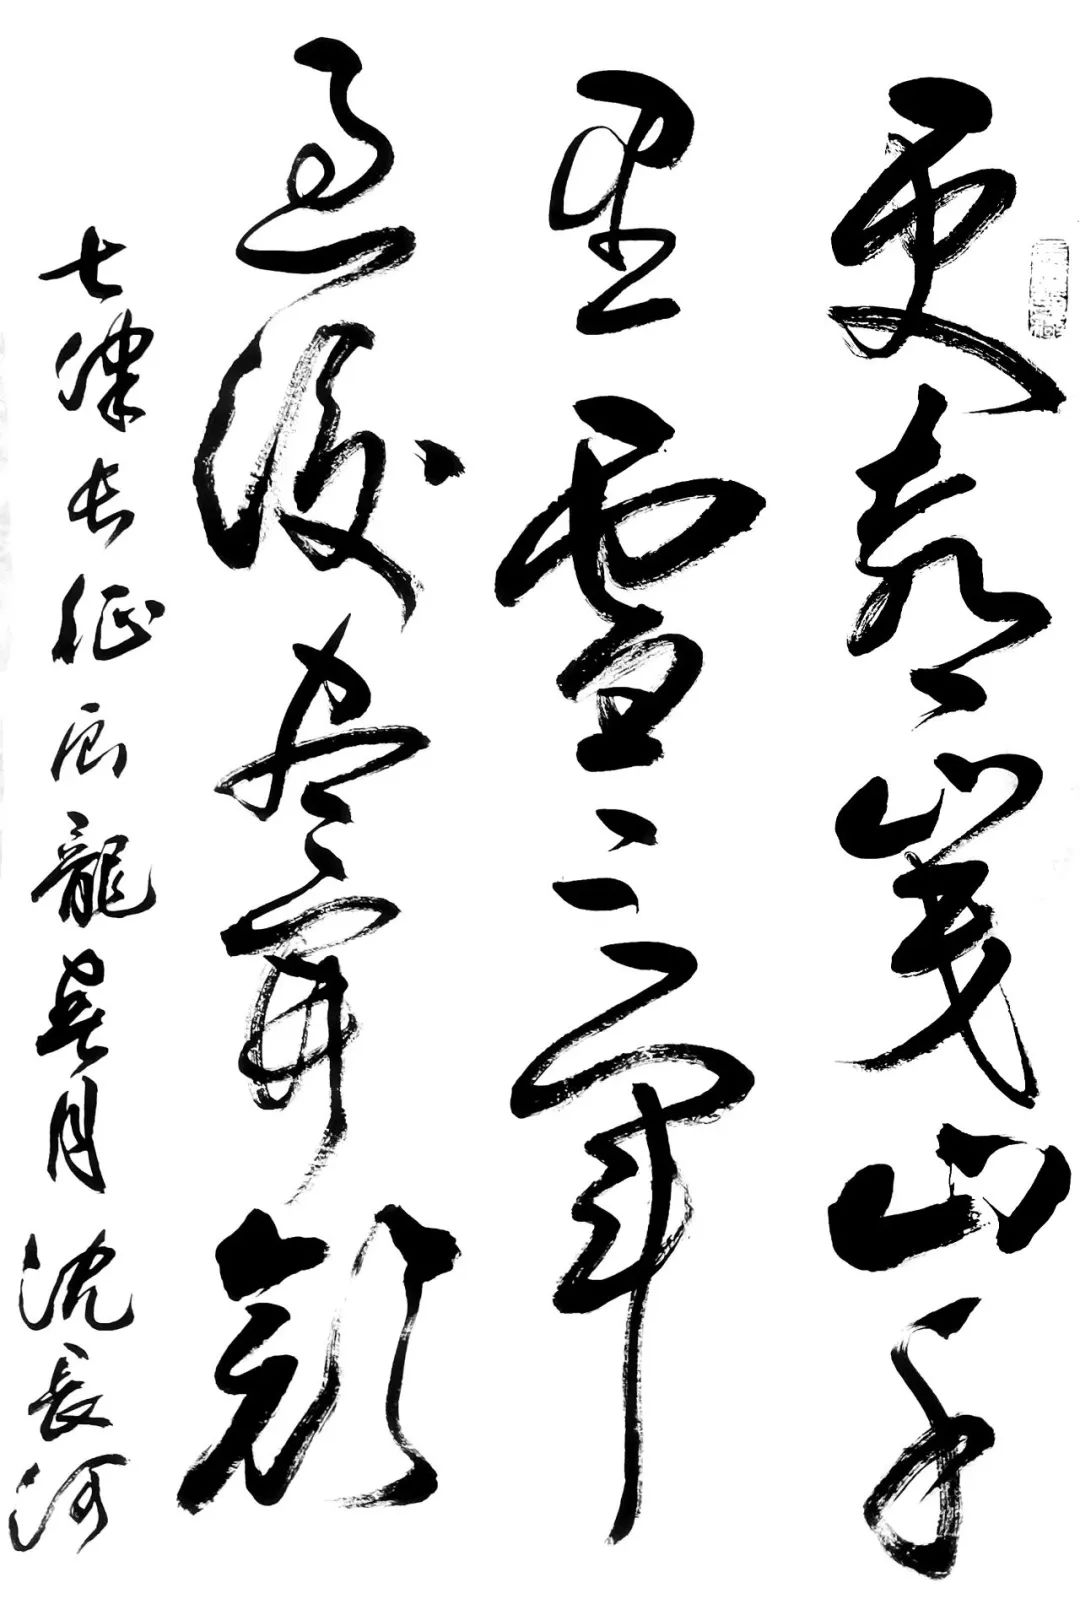 更喜岷山千
里雪三軍
過後盡開顏
七律长征龍春月沈長河